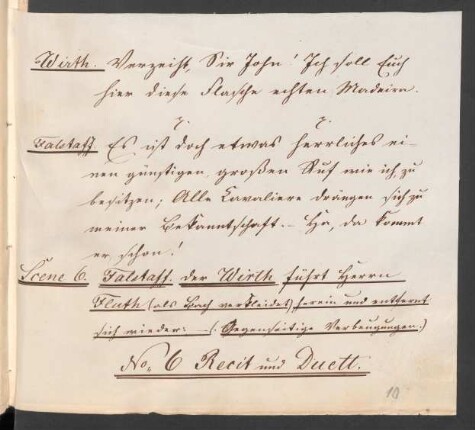 Wirth. Verzeiht, Sir John! Ich soll Euch
hier diese Flasche echten Madeira.
Falstaff. Es ist doch etwas herrliches ei-
nen günstigen, großen Ruf wie ich, zu
besitzen; Alle Cavaliere drängen sich zu
meiner Bekanntschaft. – Ha, da kommt
er schon!
Scene 6. Falstaff. der Wirth führt Herrn
Fluth (als Bach verkleidet) herein und entfernt
sich wieder: – (Gegenseitige Verbeugungen.)
No. 6 Recit und Duett.
10